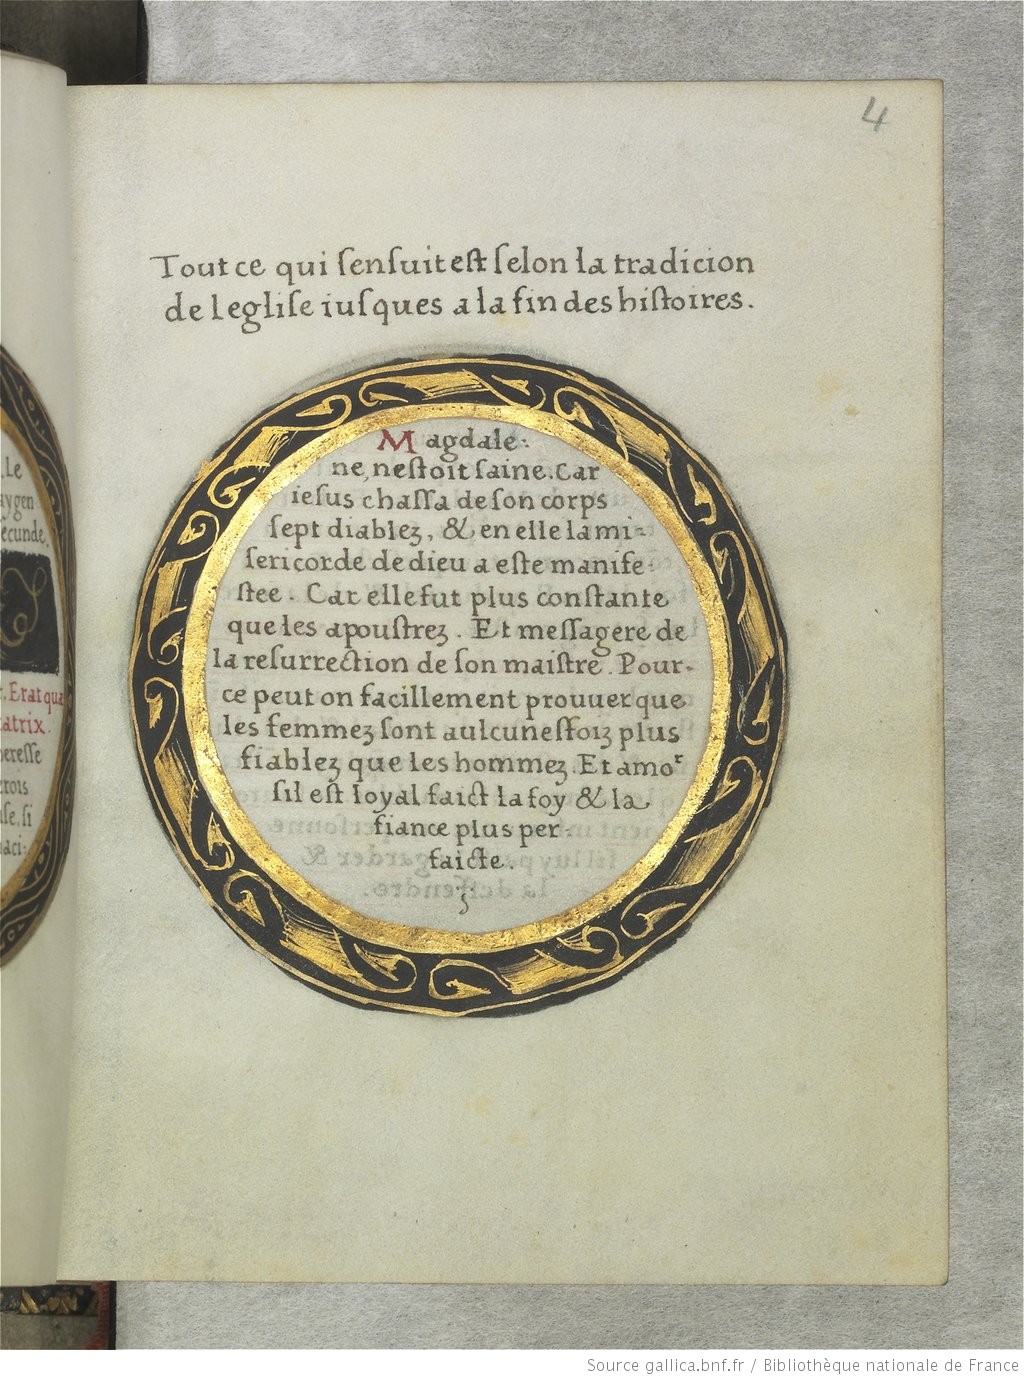 4
Tout ce qui ſenſuit est ſelon la tradicion
de legliſe iuſques a la fin des hiſtoires.
Magdale-
ne, neſtoit ſaine. Car
ieſus chaſſa de ſon corps
ſept diablez, & en elle la mi-
ſericorde de dieu a eſte manife-
ſtee. Car elle fut plus conſtante
que les apouſtrez. Et meſſagere de
la reſurrection de ſon maiſtre. Pour-
ce peut on facillement prouuer que
les femmez ſont aulcuneſfoiz plus
fiablez que les hommez. Et amoʳ
ſil eſt loyal faict la foy & la
fiance plus per-
faicte.
Le
aygen
ecunde.
r. Erat qua
tatrix.
pereſſe
trois
ſſe, ſi
naci-
Source gallica.bnf.fr / Bibliothèque nationale de France